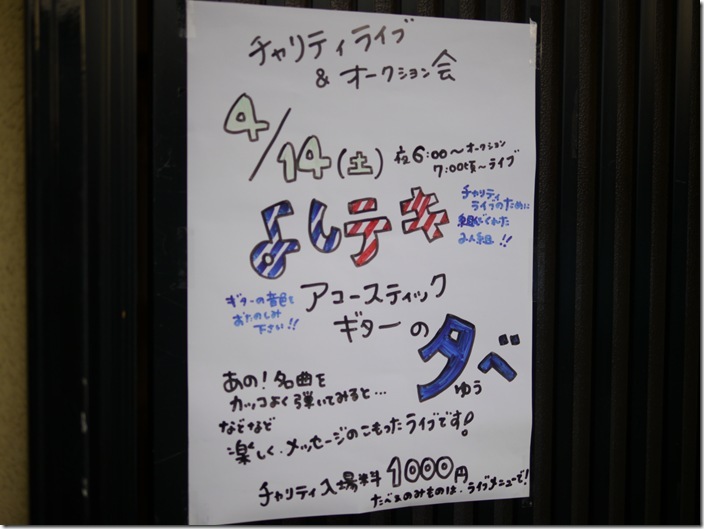 チャリティライブ
& オークション会
4/14(土)
夜6:00〜オークション
7:00頃〜ライブ
よしテキ
チャリティ
ライブのために
組んでくれた
2人組!!
ギターの音色を
おたのしみ
下さい!!
アコースティック
ギターの
夕べ
ゆう
あの!名曲を
カッコよく弾いてみると…
などなど
楽しく、メッセージのこもったライブです!
チャリティ入場料1000円
たべものみものは、ライブメニューで!